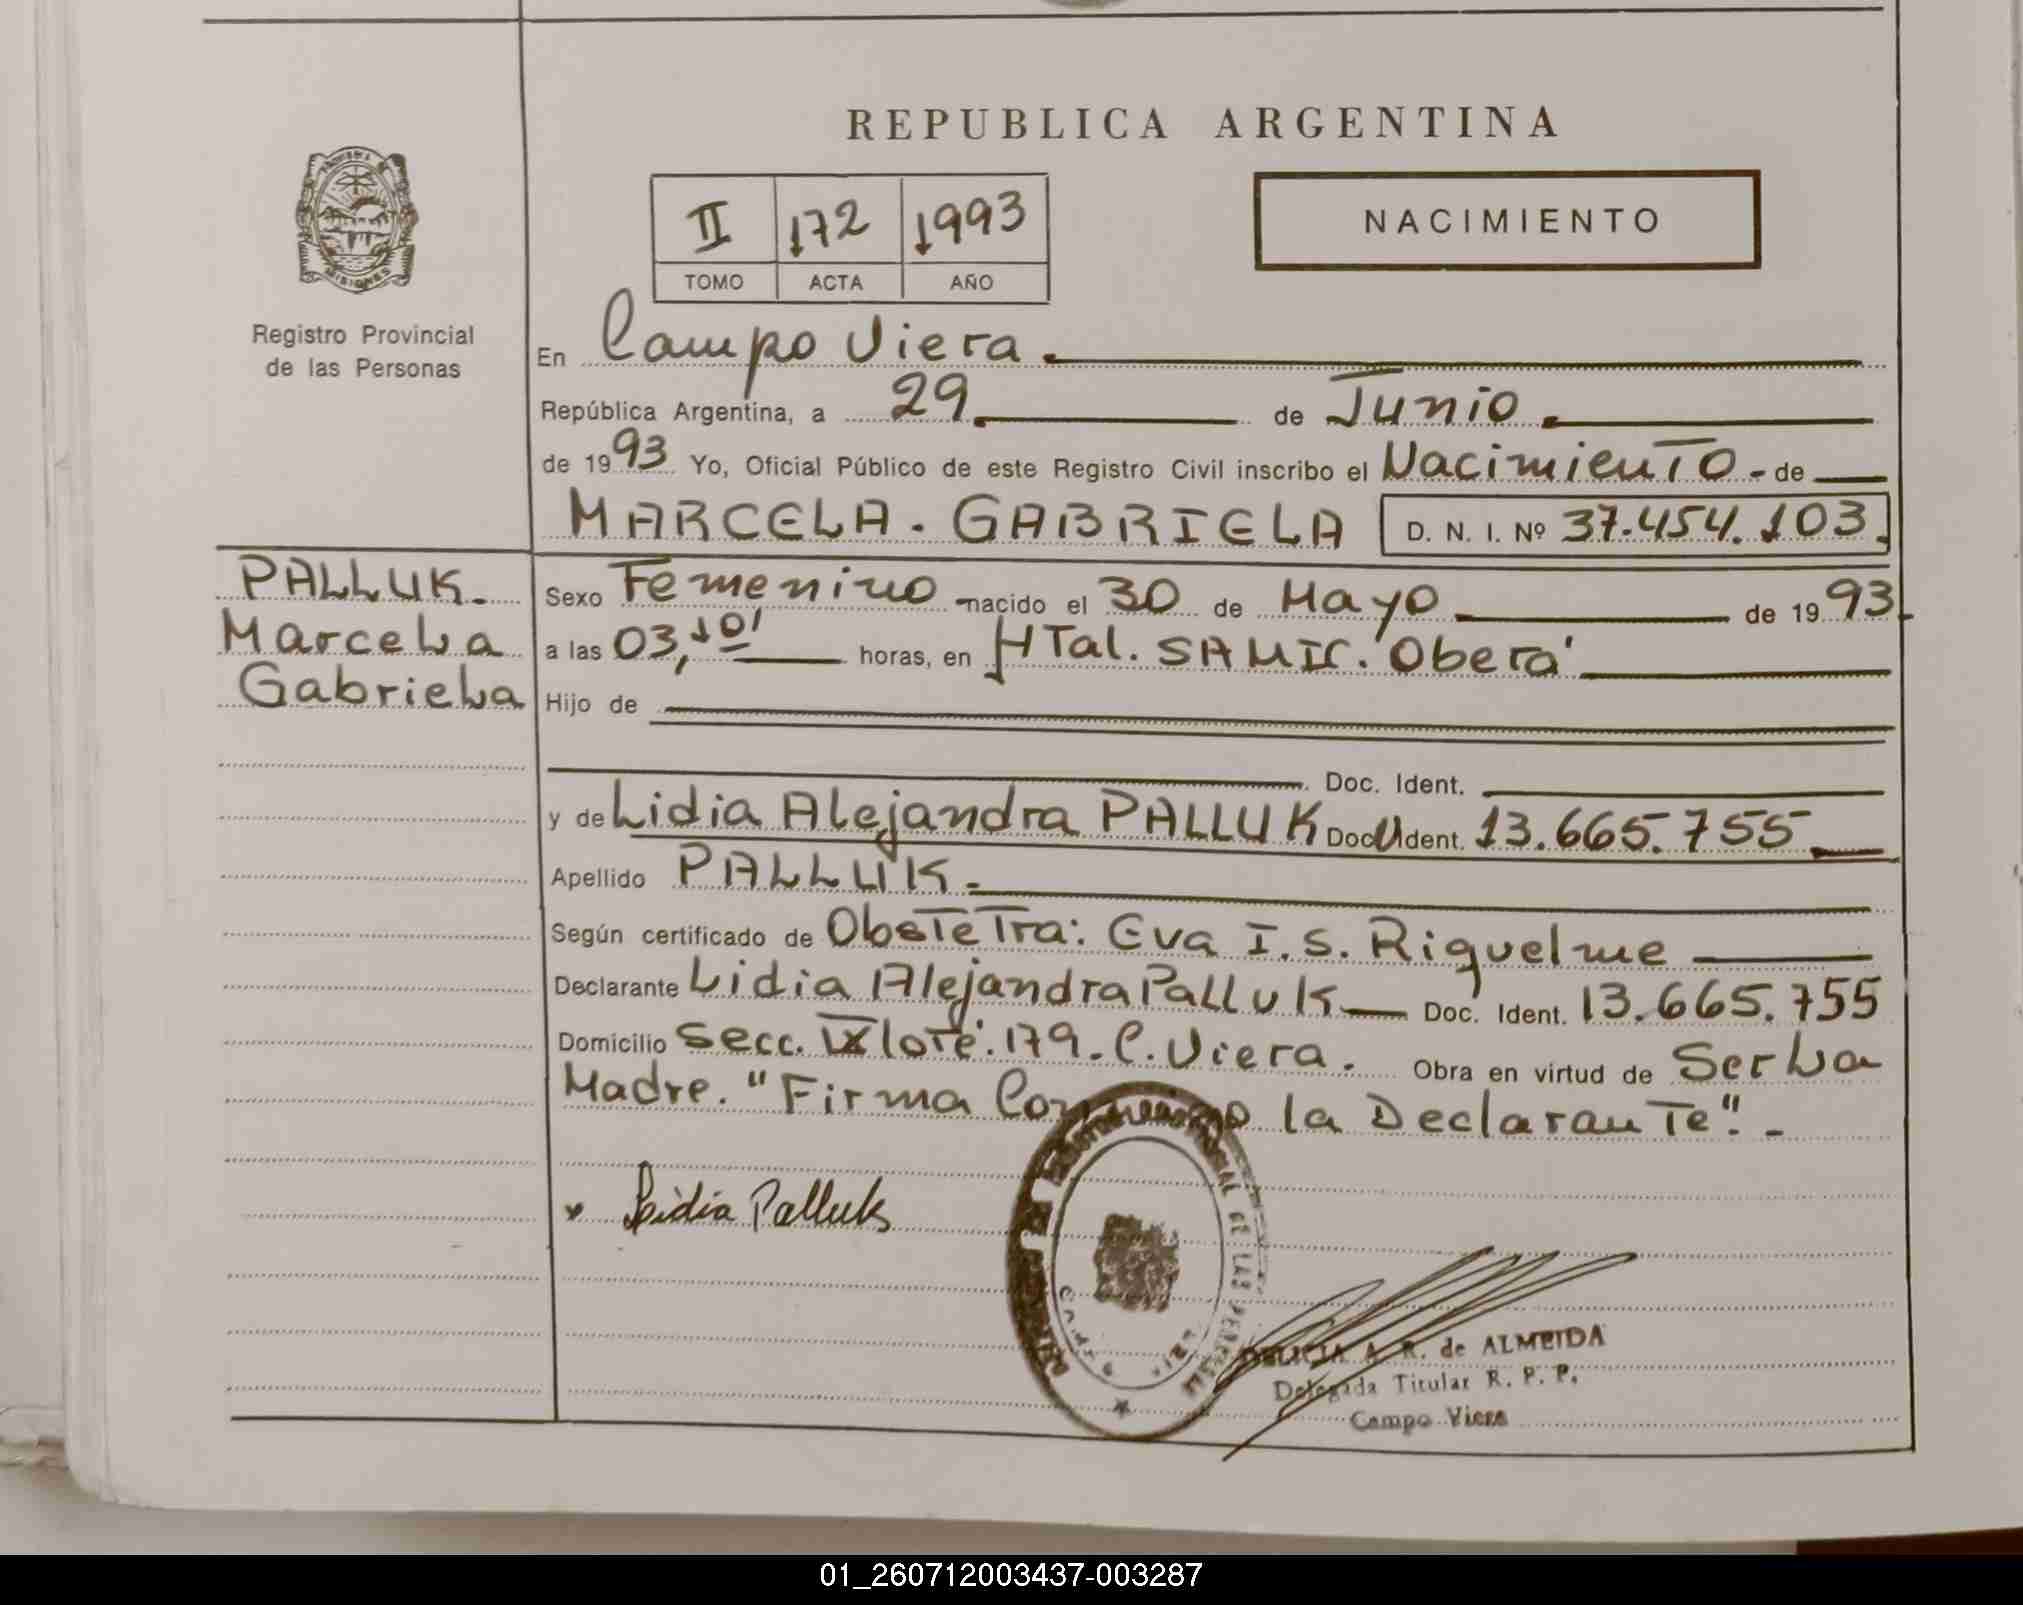 REPUBLICA ARGENTINA
II 172 1993
TOMO ACTA AÑO
NACIMIENTO
MISIONES
Registro Provincial
de las Personas
En Campo Viera.
República Argentina, a 29 de Junio.
de 1993 Yo, Oficial Público de este Registro Civil inscribo el Nacimiento - de
MARCELA. GABRIELA D. N. I. Nº 37.454.103.
PALLUK.
Marcela
Gabriela
Sexo Femenino nacido el 30 de Mayo de 1993
a las 03,10' horas, en HTal. SAMIC. Oberá
Hijo de
Doc. Ident.
y de Lidia Alejandra PALLUK Doc. Ident. 13.665.755
Apellido PALLUK.
Según certificado de ObsteTra: Eva I.S. Riquelme
Declarante Lidia Alejandra Palluk Doc. Ident. 13.665.755
Domicilio Secc. IX lote: 179. C. Viera. Obra en virtud de Ser la
Madre. "Firma Conmigo la Declarante".-
Lidia Palluk
DE LAS
DELICIA A. R. de ALMEIDA
Delegada Titular R. P. P.
Campo Viera
01_260712003437-003287